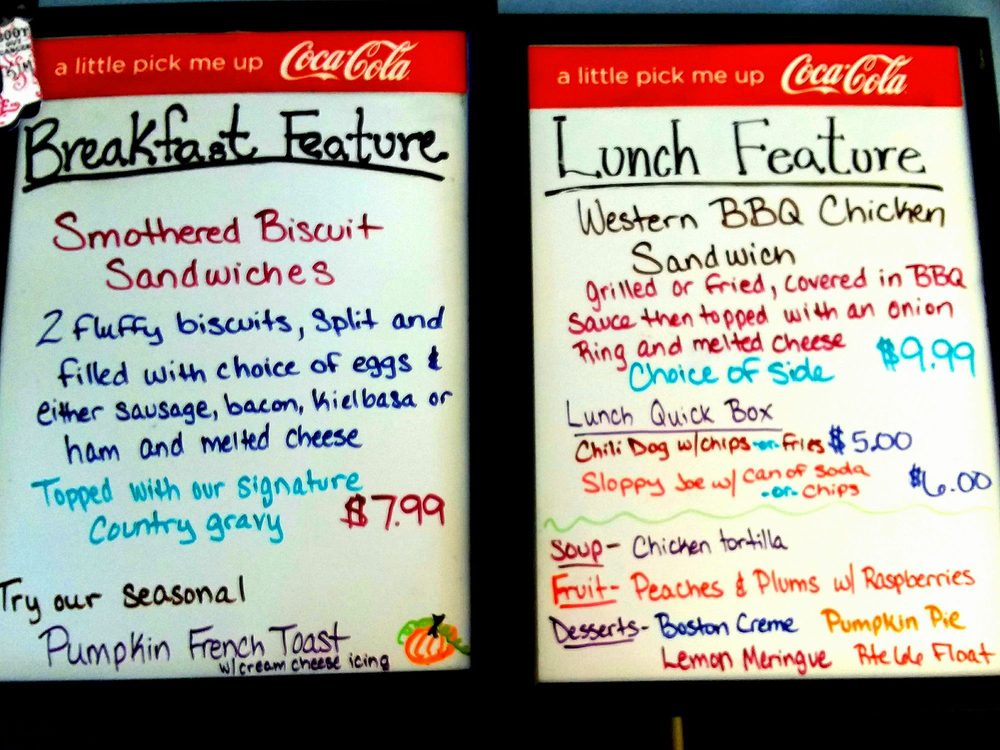 a little pick me up Coca-Cola
Breakfast Feature
Smothered Biscuit
Sandwiches
2 fluffy biscuits, split and
filled with choice of eggs &
either sausage, bacon, Kielbasa or
ham and melted cheese
Topped with our signature
Country gravy $7.99
Try our seasonal
Pumpkin French Toast
w/cream cheese icing
a little pick me up Coca-Cola
Lunch Feature
Western BBQ Chicken
Sandwich
grilled or fried, covered in BBQ
sauce then topped with an onion
Ring and melted cheese $9.99
Choice of side
Lunch Quick Box
Chili Dog w/chips -or- fries $5.00
Sloppy Joe w/ can of soda $6.00
-or- chips
Soup- Chicken tortilla
Fruit- Peaches & Plums w/ Raspberries
Desserts- Boston Creme Pumpkin Pie
Lemon Meringue Float